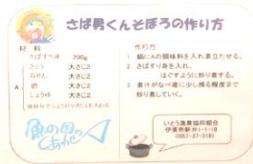 さば男くんそぼろの作り方
材 料
さばすり身 200g
さとう 大さじ2
みりん 大さじ2
A 酒 大さじ2
しょうゆ 大さじ2
作り方
1 鍋にAの調味料を入れ煮立たせる。
2 さばすり身を入れ、
はぐすように炒り煮する。
3 煮汁がなべ底に少し残る程度まで
炒り煮していく。
魚の国の
いとう漁業協同組合
伊東市